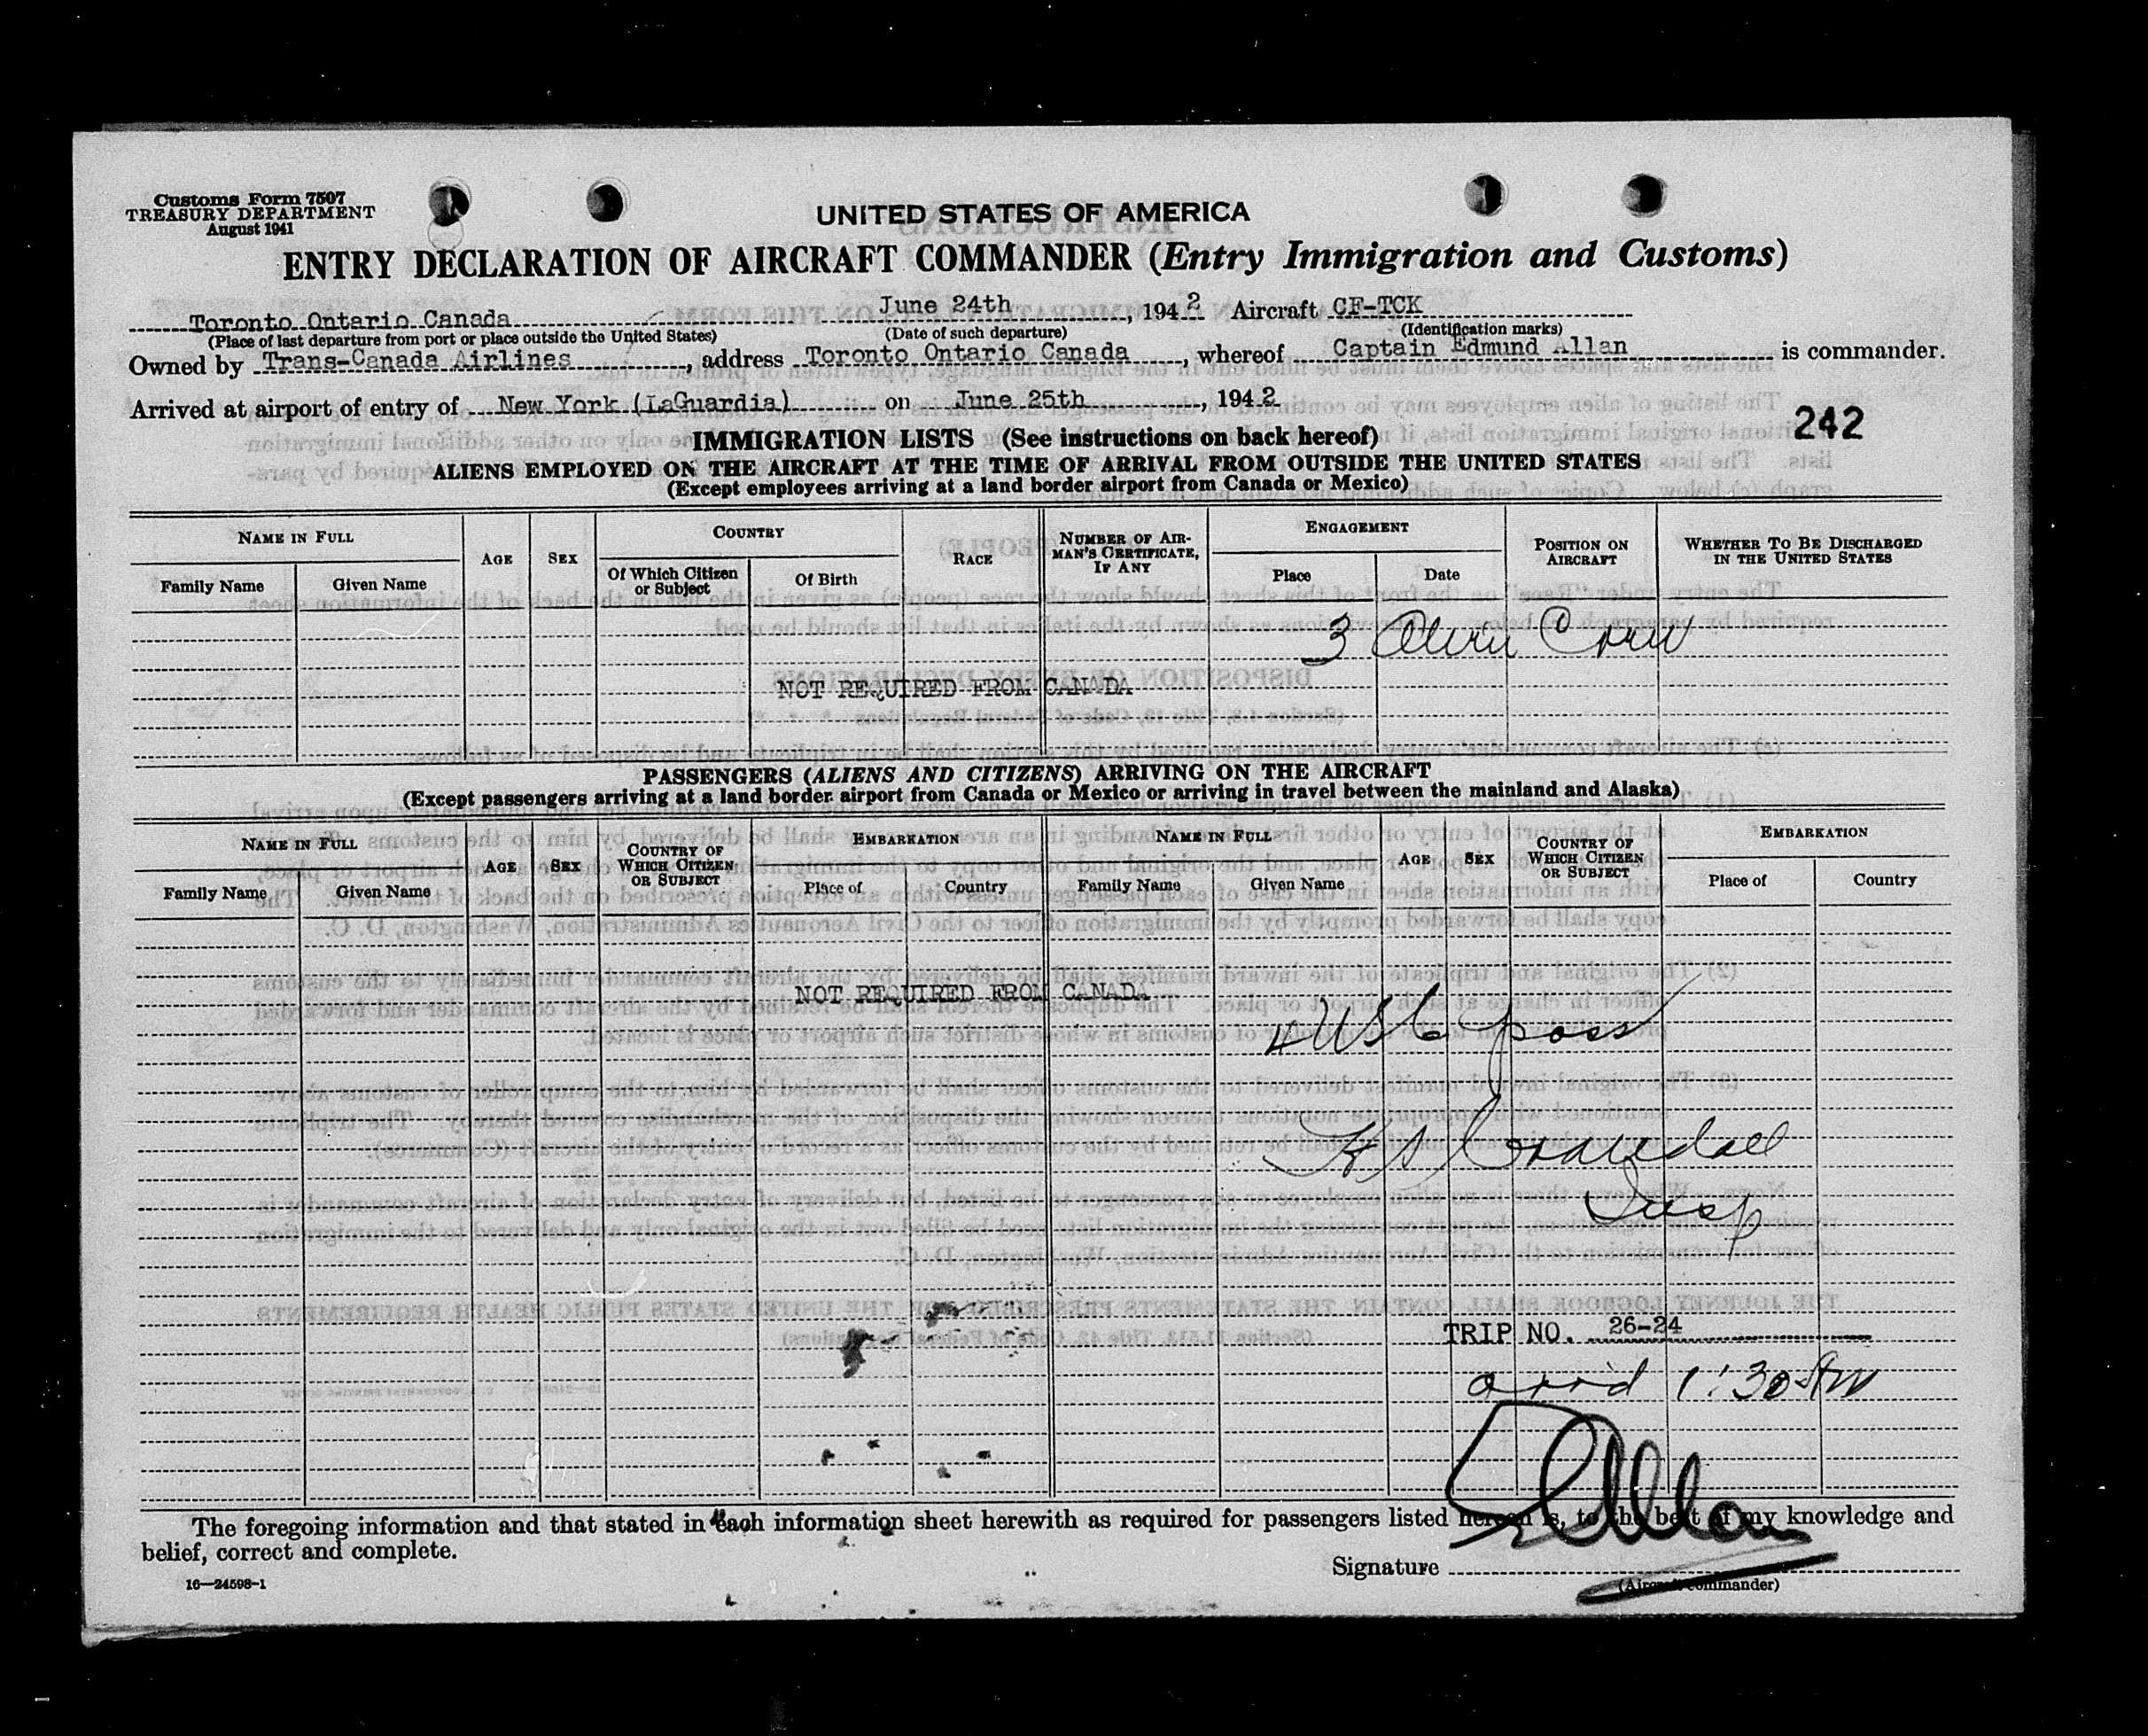 Customs Form 7507
TREASURY DEPARTMENT
August 1941
UNITED STATES OF AMERICA
ENTRY DECLARATION OF AIRCRAFT COMMANDER (Entry Immigration and Customs)
Toronto Ontario Canada June 24th, 1942 Aircraft CF-TCK
(Place of last departure from port or place outside the United States) (Date of such departure) (Identification marks)
Owned by Trans-Canada Airlines, address Toronto Ontario Canada, whereof Captain Edmund Allan is commander.
Arrived at airport of entry of New York (LaGuardia) on June 25th, 1942
242
IMMIGRATION LISTS (See instructions on back hereof)
ALIENS EMPLOYED ON THE AIRCRAFT AT THE TIME OF ARRIVAL FROM OUTSIDE THE UNITED STATES
(Except employees arriving at a land border airport from Canada or Mexico)
NAME IN FULL AGE SEX COUNTRY RACE NUMBER OF AIRMAN'S CERTIFICATE, IF ANY ENGAGEMENT POSITION ON AIRCRAFT WHETHER TO BE DISCHARGED IN THE UNITED STATES
Family Name Given Name Of Which Citizen or Subject Of Birth Place Date
3 Alien Crew
NOT REQUIRED FROM CANADA
PASSENGERS (ALIENS AND CITIZENS) ARRIVING ON THE AIRCRAFT
(Except passengers arriving at a land border airport from Canada or Mexico or arriving in travel between the mainland and Alaska)
NAME IN FULL AGE SEX COUNTRY OF WHICH CITIZEN OR SUBJECT EMBARKATION NAME IN FULL AGE SEX COUNTRY OF WHICH CITIZEN OR SUBJECT EMBARKATION
Family Name Given Name Place of Country Family Name Given Name Place of Country
NOT REQUIRED FROM CANADA
4 USC pass
Crandall
Insp
TRIP NO. 26-24
arrid 1:30 AM
EAllan
The foregoing information and that stated in each information sheet herewith as required for passengers listed hereon is, to the best of my knowledge and
belief, correct and complete.
Signature
(Aircraft commander)
16—24598-1